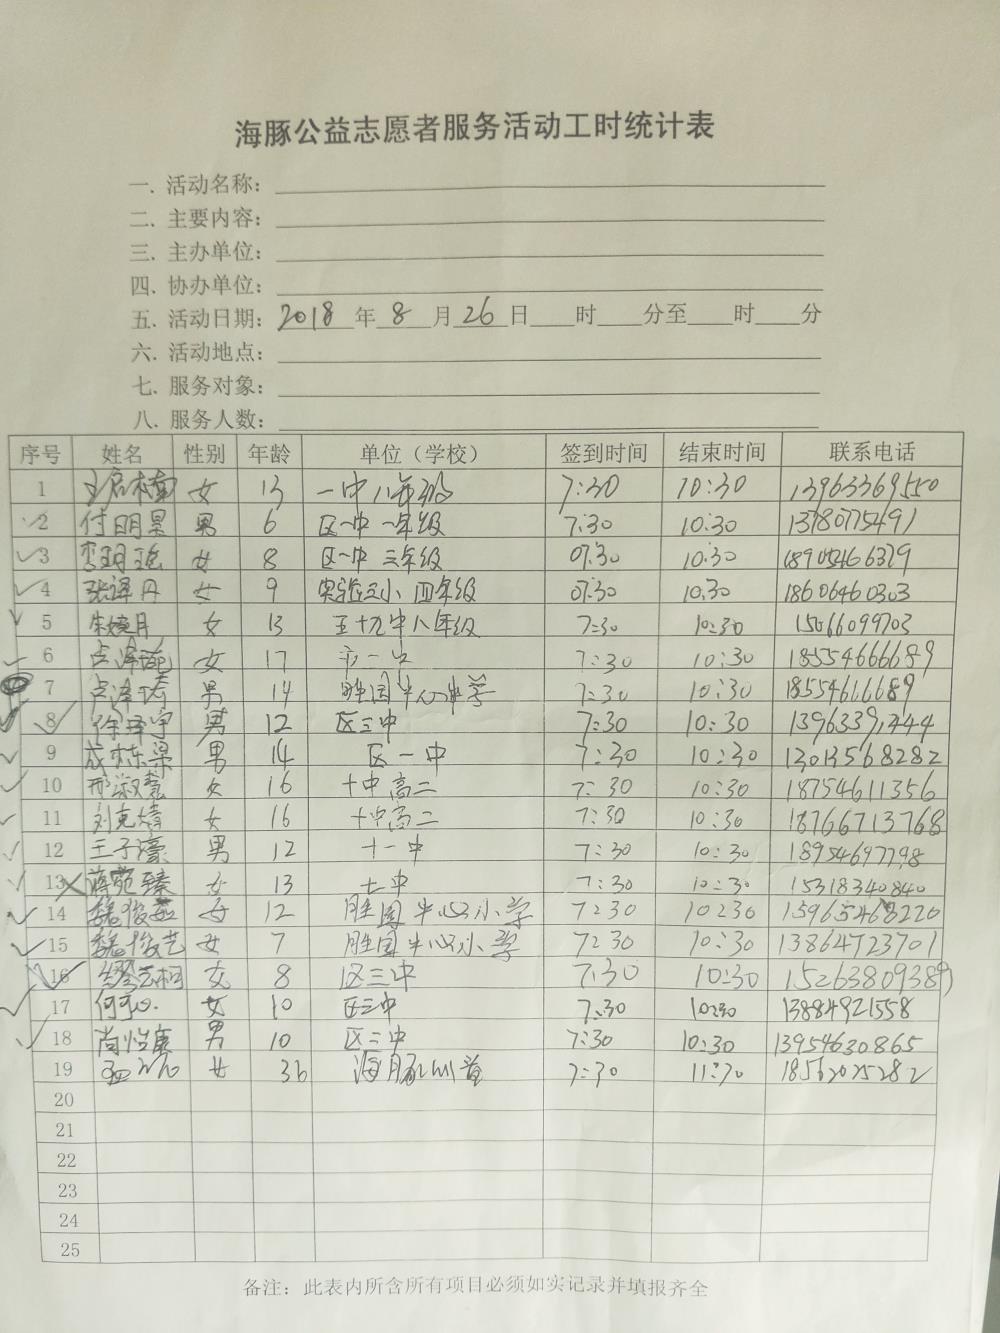 海豚公益志愿者服务活动工时统计表
一. 活动名称:
二. 主要内容:
三. 主办单位:
四. 协办单位:
五. 活动日期: 2018 年 8 月 26 日 时 分至 时 分
六. 活动地点:
七. 服务对象:
八. 服务人数:
序号 姓名 性别 年龄 单位（学校） 签到时间 结束时间 联系电话
1 女 13 一中八年级 7:30 10:30 13963369550
2 付明昊 男 6 区一中 一年级 7:30 10:30 13780775491
3 李玥瑶 女 8 区一中 三年级 07:30 10:30 18905466379
4 张译丹 女 9 实验三小 四年级 07:30 10:30 18606460303
5 朱婉月 女 13 五十九中八年级 7:30 10:30 15066099703
6 卢泽琬 女 17 市一中 7:30 10:30 18554666689
7 卢泽涛 男 14 胜园中心中学 7:30 10:30 18554666689
8 徐泽宇 男 12 区三中 7:30 10:30 13963391444
9 成栋梁 男 14 区一中 7:30 10:30 13013568282
10 邢淑慧 女 16 十中高二 7:30 10:30 18754611356
11 刘克婧 女 16 十中高二 7:30 10:30 18766713768
12 王子濠 男 12 十一中 7:30 10:30 18954697798
13 蒋苑臻 女 13 七中 7:30 10:30 15318340840
14 魏俊茹 女 12 胜园中心小学 7:30 10:30 15965468220
15 魏俊艺 女 7 胜园中心小学 7:30 10:30 13864723701
16 女 8 区三中 7:30 10:30 15263809389
17 何可心 女 10 区三中 7:30 10:30 13884921558
18 尚怡康 男 10 区二中 7:30 10:30 13954630865
19 女 36 海豚 7:30 11:30 18562025282
20
21
22
23
24
25
备注：此表内所含所有项目必须如实记录并填报齐全